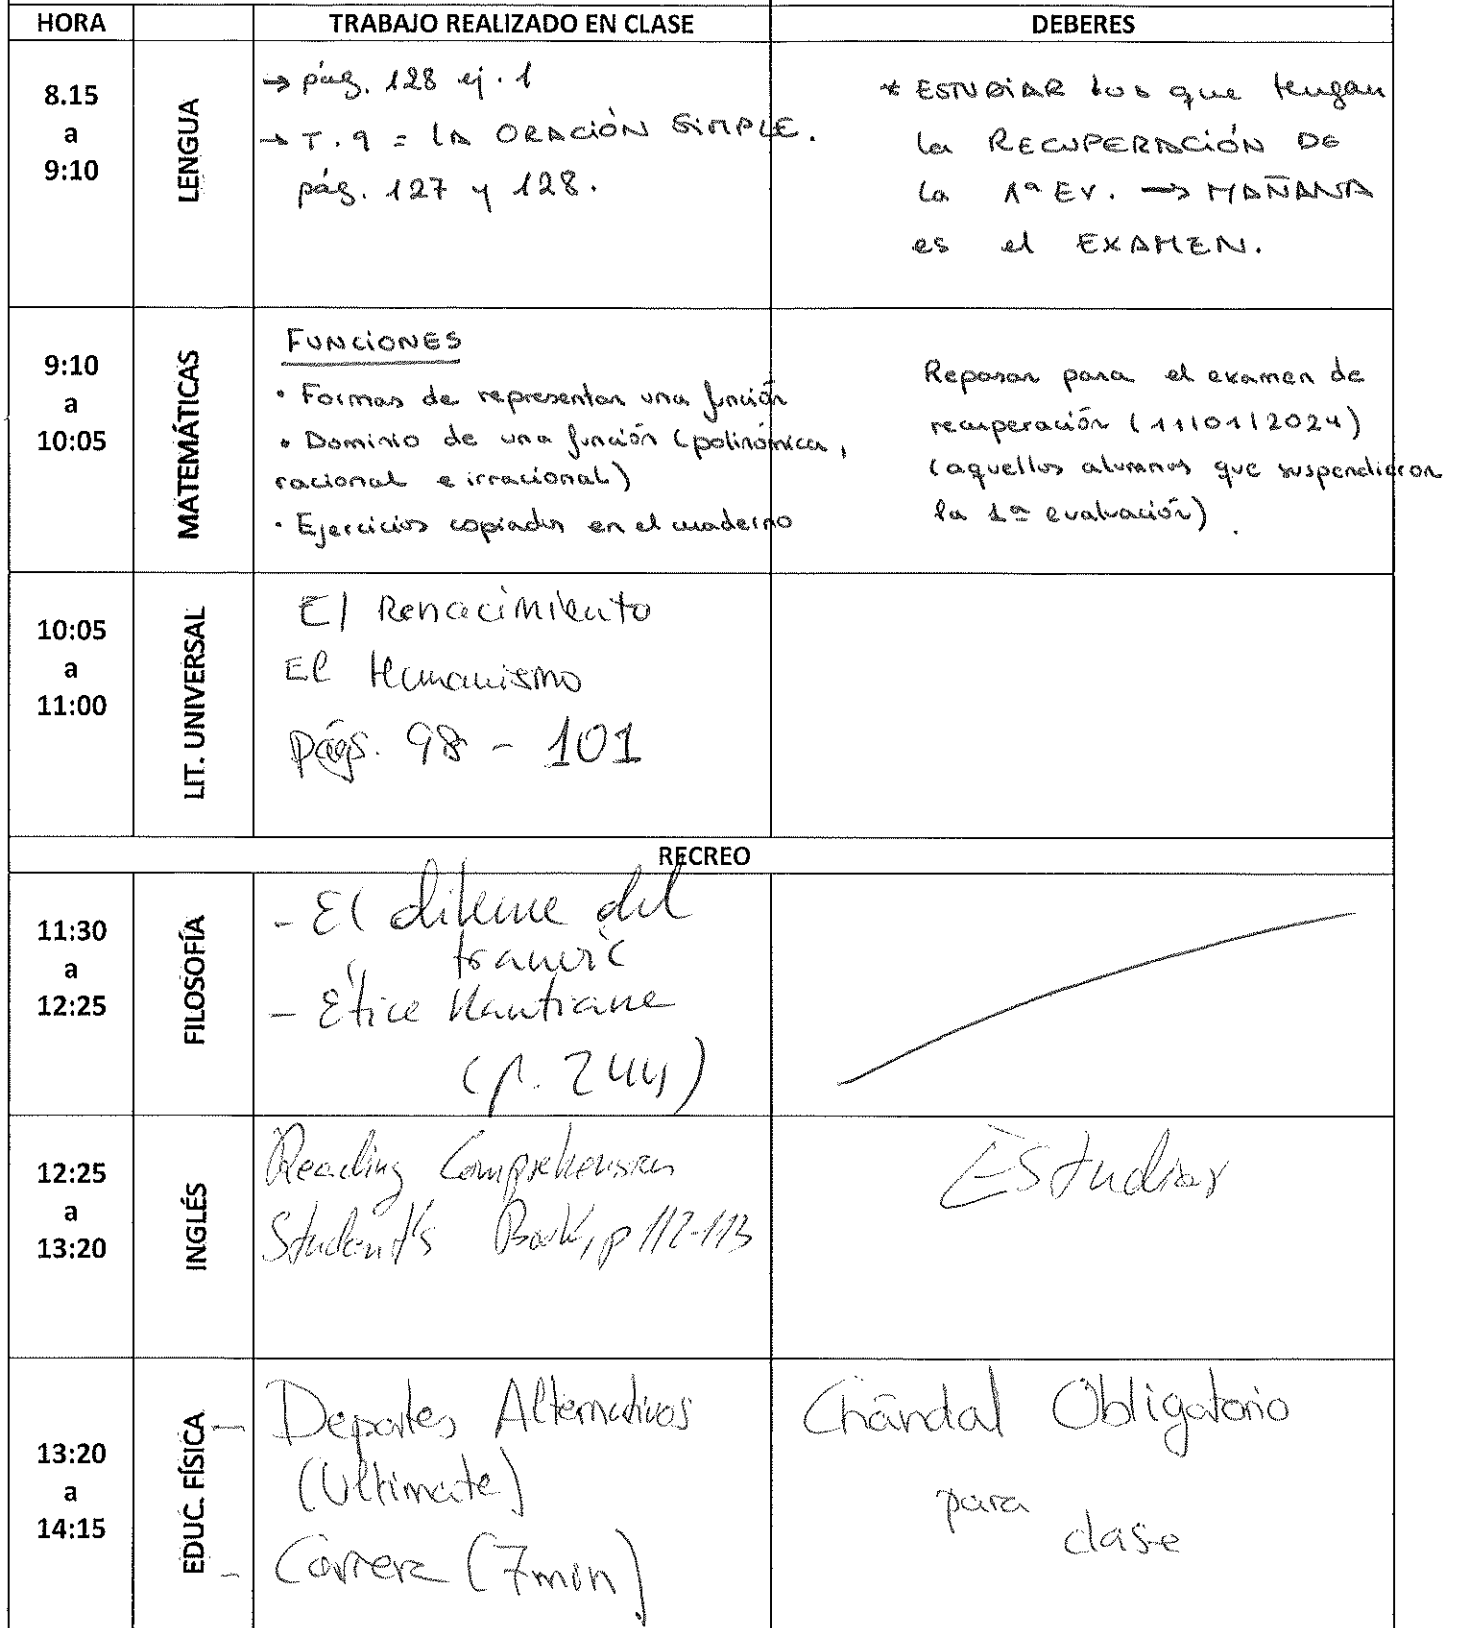 HORA TRABAJO REALIZADO EN CLASE DEBERES
8.15
a
9:10
LENGUA
→ pág. 128 ej. 1
→ T. 9 = LA ORACIÓN SIMPLE.
pág. 127 y 128.
* ESTUDIAR los que tengan
la RECUPERACIÓN DE
la 1ª EV. → MAÑANA
es el EXAMEN.
9:10
a
10:05
MATEMÁTICAS
FUNCIONES
• Formas de representar una función
• Dominio de una función (polinómica,
racional e irracional)
• Ejercicios copiados en el cuaderno
Repasar para el examen de
recuperación (11/01/2024)
(aquellos alumnos que suspendieron
la 1ª evaluación).
10:05
a
11:00
LIT. UNIVERSAL
El Renacimiento
El Humanismo
págs. 98 - 101
RECREO
11:30
a
12:25
FILOSOFÍA
- El dilema del
tranvía
- Ética Kantiana
(p. 244)
12:25
a
13:20
INGLÉS
Reading Comprehension
Student's Book, p 112-113
Estudiar
13:20
a
14:15
EDUC. FÍSICA
- Deportes Alternativos
(Ultimate)
- Carrera (7 min)
Chándal Obligatorio
para
clase